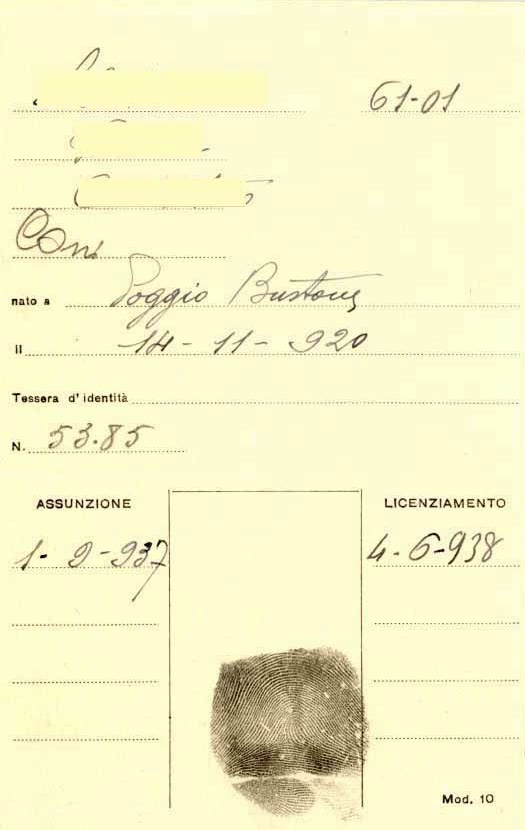 61-01
Con.
nato a Poggio Bustone
il 14 - 11 - 920
Tessera d'identità
N. 53.85
ASSUNZIONE LICENZIAMENTO
1 - 9 - 937 4 - 6 - 938
Mod. 10